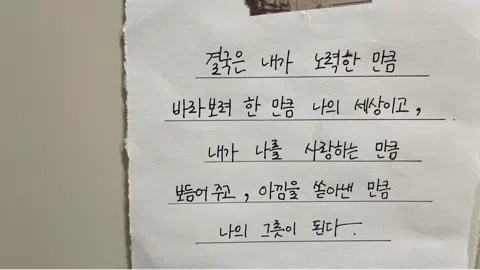 결국은 내가 노력한 만큼
바라보려 한 만큼 나의 세상이고,
내가 나를 사랑하는 만큼
보듬어 주고, 아낌을 쏟아낸 만큼
나의 그릇이 된다.